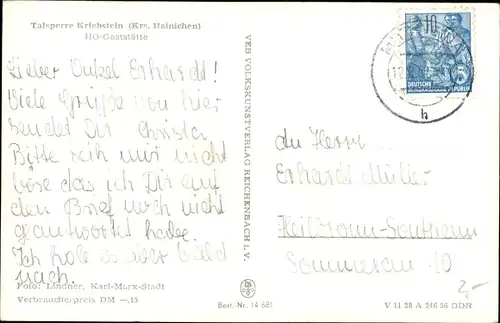 Talsperre Kriebstein (Krs. Hainichen)
HO-Gaststätte
Lieber Onkel Erhardt!
Viele Grüße von hier
sendet Dir Christa
Bitte seih mir nicht
böse das ich Dir auf
den Brief noch nicht
geantwortet habe.
Ich hole es aber bald
nach.
Foto: Lindner, Karl-Marx-Stadt
Verbraucherpreis DM —,15
VEB VOLKSKUNSTVERLAG REICHENBACH i. V.
Best.-Nr. 14 681
10
DEUTSCHE
DEMOKRATISCHE REPUBLIK
5
12.
h
An Herrn
Erhardt Müller
Heilbronn-Sontheim
10
2,-
V 11 28 A 246 56 DDR